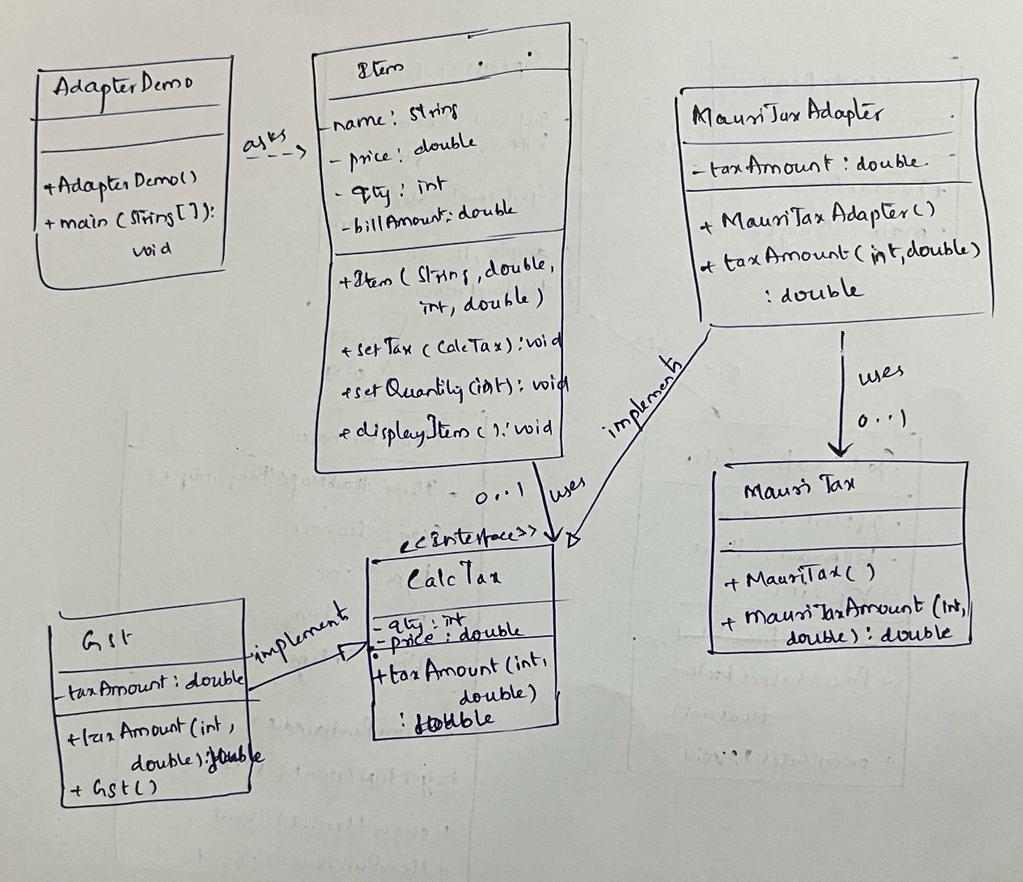 AdapterDemo
+AdapterDemo()
+ main (String[]):
void
asks
Item
-name: String
- price: double
- qty: int
-billAmount: double
+Item (String, double,
int, double)
+setTax (CalcTax): void
+setQuantity(int): void
+displayItem(): void
0..1
uses
MauriTaxAdapter
-taxAmount: double
+ MauriTaxAdapter()
+ taxAmount(int, double)
: double
implements
uses
0..1
Mauri Tax
+ MauriTax( )
+ mauriTaxAmount (int,
double): double
<<Interface>>
CalcTax
- qty: int
- price: double
+taxAmount (int,
double)
: double
implement
Gst
-taxAmount: double
+taxAmount(int,
double): double
+ Gst()